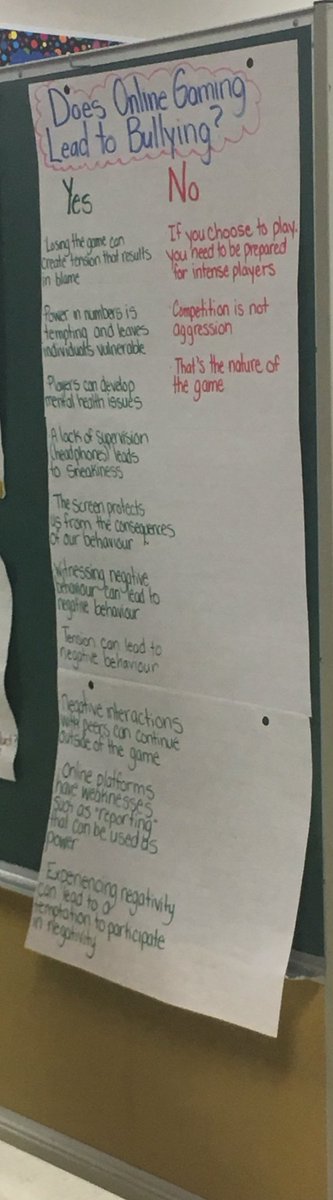 Does Online Gaming
Lead to Bullying?
Yes
Losing the game can
create tension that results
in blame
Power in numbers is
tempting and leaves
individuals vulnerable
Players can develop
mental health issues
A lack of supervision
(headphones) leads
to sneakiness
The screen protects
us from the consequences
of our behaviour
Witnessing negative
behaviour can lead to
negative behaviour
Tension can lead to
negative behaviour
Negative interactions
with peers can continue
outside of the game
Online platforms
have weaknesses
such as "reporting"
that can be used as
power
Experiencing negativity
can lead to a
temptation to participate
in negativity
No
If you choose to play,
you need to be prepared
for intense players
Competition is not
aggression
That's the nature of
the game